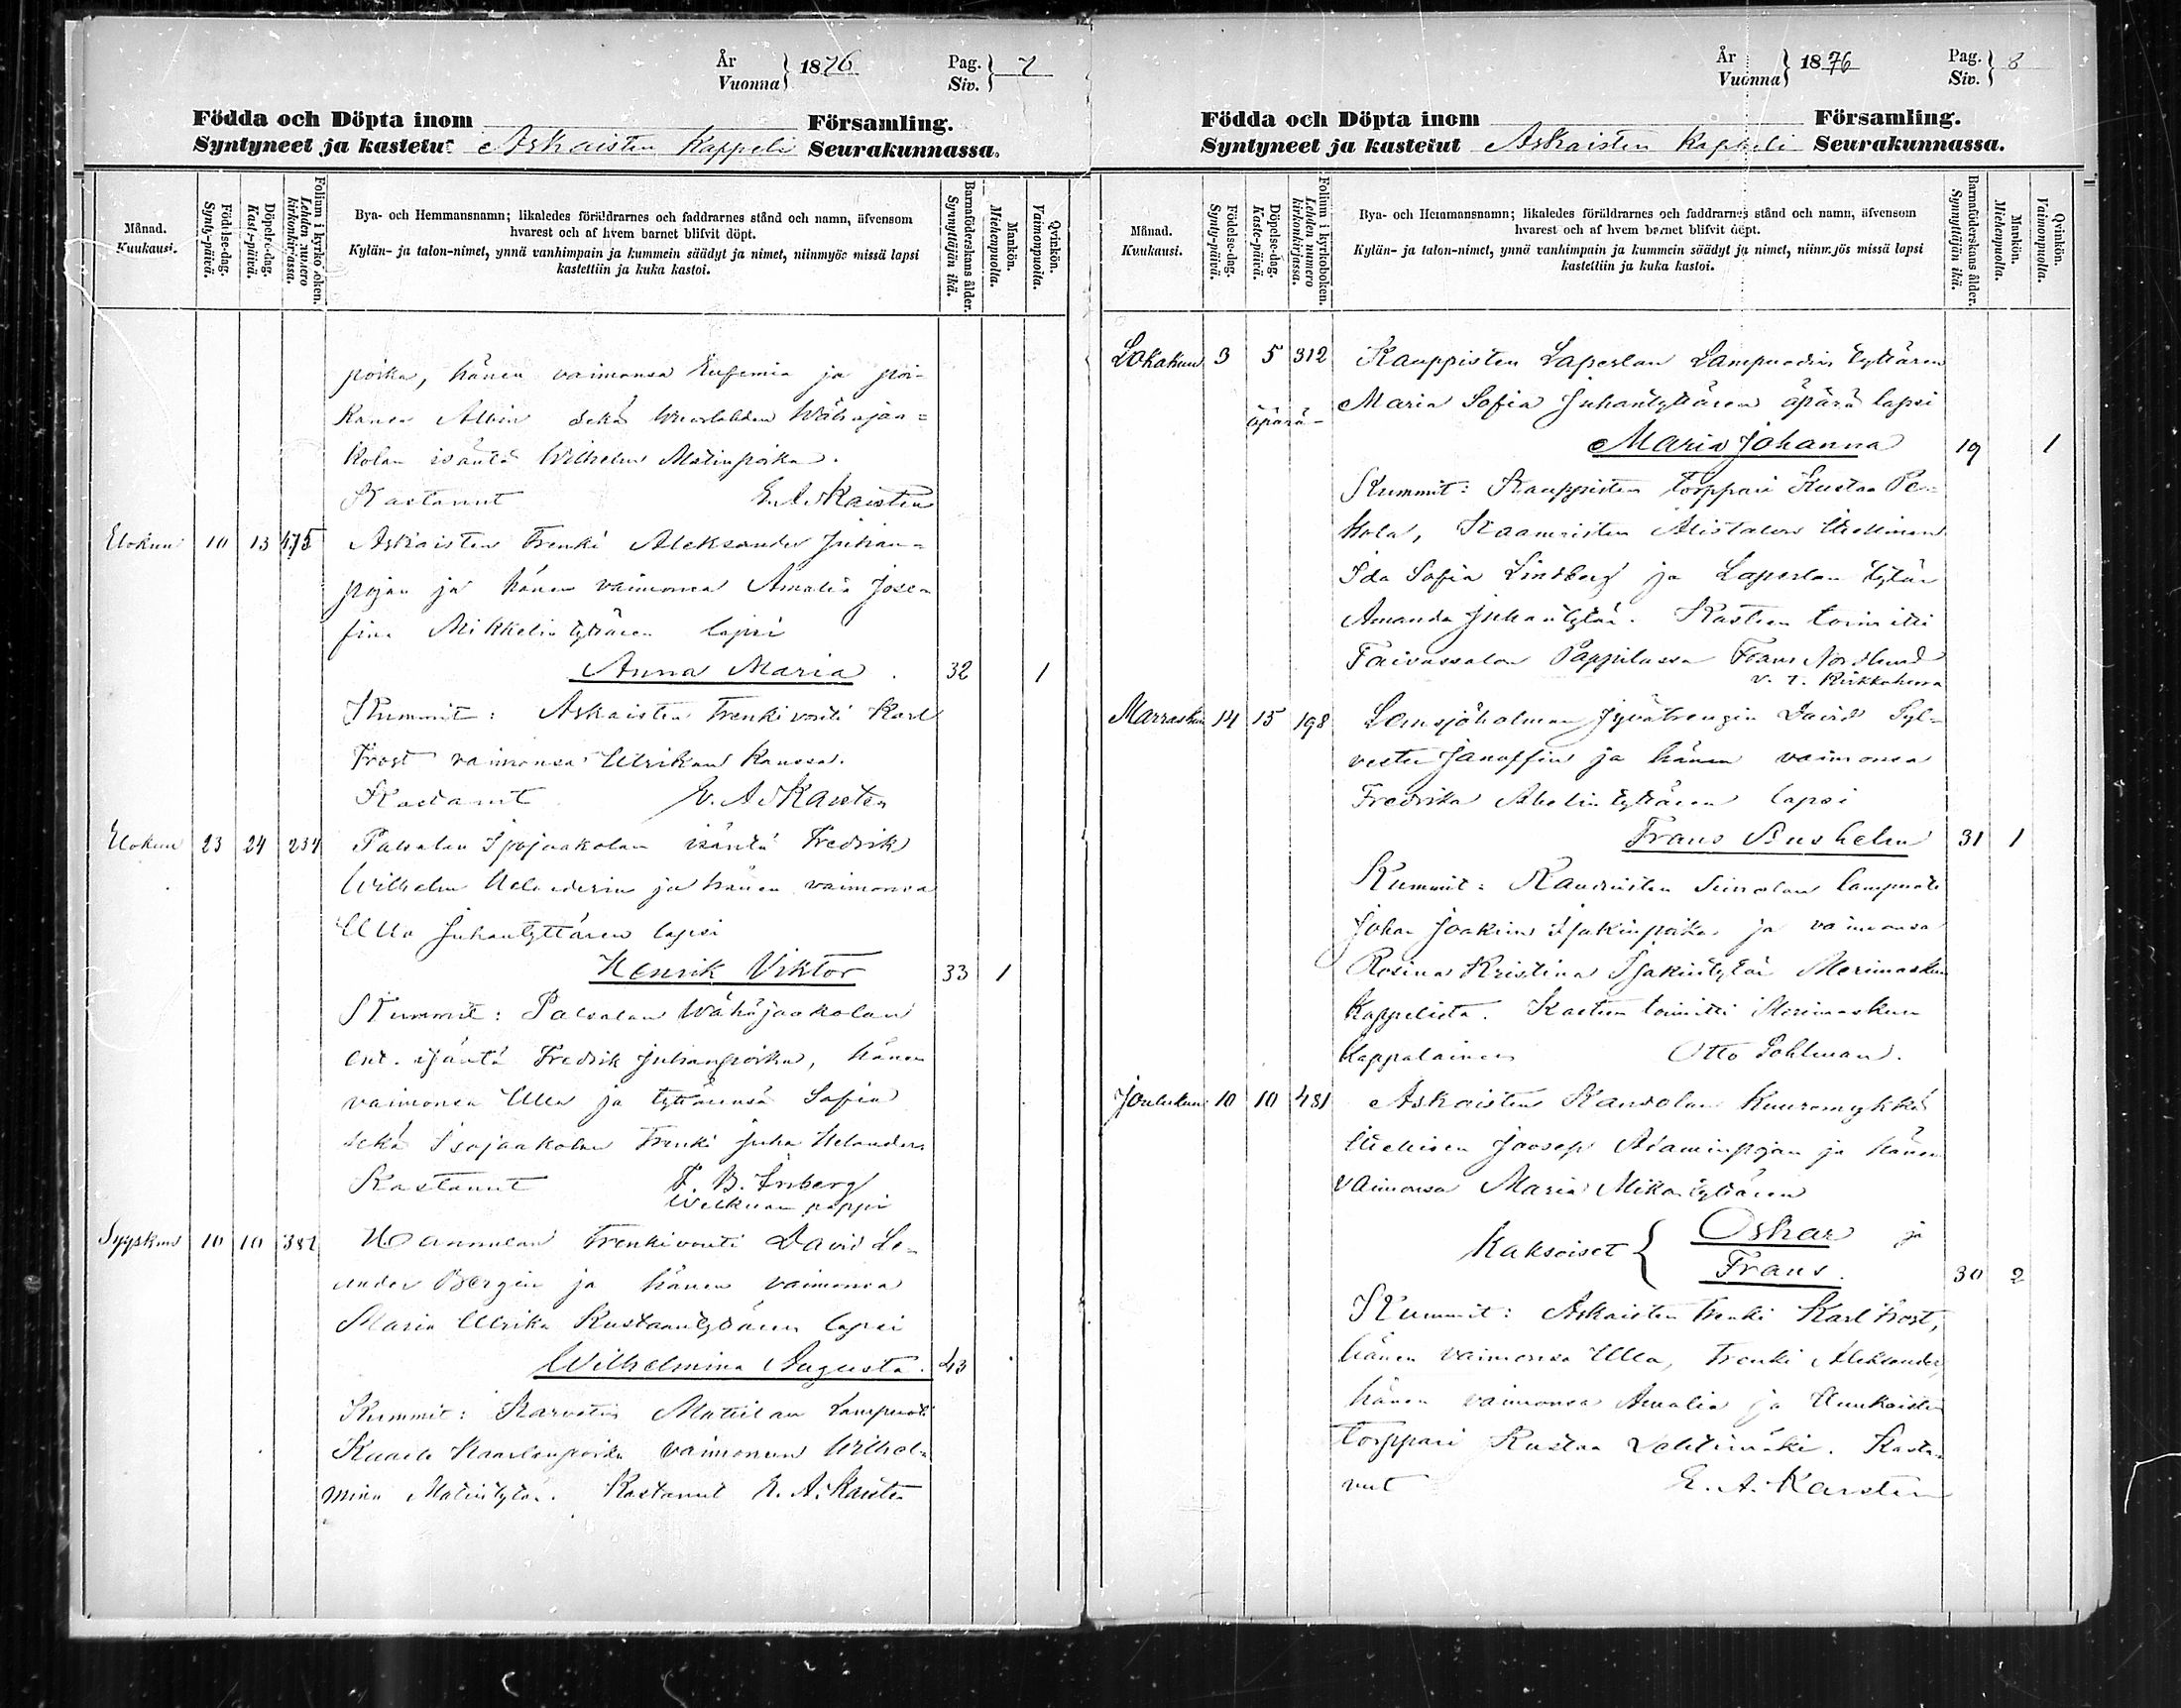 År
Vuonna } 1876
Pag.
Siv. } 7
Födda och Döpta inom Församling.
Syntyneet ja kastetut Askaisten Kappeli Seurakunnassa.
Månad.
Kuukausi.
Födelse-dag.
Synty-päivä.
Döpelse-dag.
Kaste-päivä.
Folium i kyrkoboken.
Lehden numero
kirkonkirjassa.
Bya- och Hemmansnamn; likaledes föräldrarnes och faddrarnes stånd och namn, äfvensom
hvarest och af hvem barnet blifvit döpt.
Kylän- ja talon-nimet, ynnä vanhimpain ja kummein säädyt ja nimet, niinmyös missä lapsi
kastettiin ja kuka kastoi.
Barnaföderskans ålder.
Synnyttäjän ikä.
Mankön.
Miehenpuolta.
Qvinkön.
Vaimonpuolta.
poika, hänen vaimonsa Eufemia ja poi-
kanen Albin sekä Wähäjaa=
kolan isäntä Wilhelm Matinpoika.
Kastanut E. A. Karsten
Elokuu 10 13 475 Askaisten Trenki Aleksander Juhan-
pojan ja hänen vaimonsa Amalia Jose-
fina Mikkelintyttären lapsi
Anna Maria. 32 1
Kummit: Askaisten Trenkivouti Karl
Frost vaimonsa Ulrikan kanssa.
Kastanut E. A. Karsten
Elokuu 23 24 234 Palvalan Isojaakolan isäntä Fredrik
Wilhelm Helanderin ja hänen vaimonsa
Ulla Juhantyttären lapsi
Henrik Viktor 33 1
Kummit: Palvalan Wähäjaakolan
ent. isäntä Fredrik Juhanpoika, hänen
vaimonsa Ulla ja tyttärensä Sofia
sekä Isojaakolan Trenki Juha Helander.
Kastanut F. B. Inberg
Welkuan pappi
Syyskuu 10 10 382 Hannulan Trenkivouti David Le-
ander Bergin ja hänen vaimonsa
Maria Ulrika Kustaantyttären lapsi
Wilhelmina Augusta. 43
Kummit: Karvatin Matiilan Lampuoti
Kaarle Kaarlenpoika vaimonsa Wilhel-
mina Matintytär. Kastanut E. A. Karsten
År
Vuonna } 1876
Pag.
Siv. } 8
Födda och Döpta inom Församling.
Syntyneet ja kastetut Askaisten Kappeli Seurakunnassa.
Månad.
Kuukausi.
Födelse-dag.
Synty-päivä.
Döpelse-dag.
Kaste-päivä.
Folium i kyrkoboken.
Lehden numero
kirkonkirjassa.
Bya- och Hemmansnamn; likaledes föräldrarnes och faddrarnes stånd och namn, äfvensom
hvarest och af hvem barnet blifvit döpt.
Kylän- ja talon-nimet, ynnä vanhimpain ja kummein säädyt ja nimet, niinmyös missä lapsi
kastettiin ja kuka kastoi.
Barnaföderskans ålder.
Synnyttäjän ikä.
Mankön.
Miehenpuolta.
Qvinkön.
Vaimonpuolta.
Lokakuu 3 5 312 Kauppisten Laperlan Lampuodin tyttären
äpärä- Maria Sofia Juhantyttären äpärä lapsi
Maria Johanna 19 1
Kummit: Kauppisten Torppari Kustaa Pe-
kola, Kaanristen Alistalon Itsellinen
Ida Sofia Lindberg ja Laperlan tytär
Amanda Juhantytär. Kasteen toimitti
Taivassalon Pappilassa Frans Nordlund
v. t. Kirkkoherra
Marraskuu 14 15 198 Lemsjöholman Jyvätrengin David Syl-
vester Janoffin ja hänen vaimonsa
Fredrika Abelintyttären lapsi
Frans 31 1
Kummit: Simolan lampuoti
Johan Joakim Isakinpoika ja vaimonsa
Rosina Kristina Isakintytär Merimaskun
Kappelista. Kasteen toimitti Merimaskun
kappalainen Otto Pohlman.
Joulukuu 10 10 481 Askaisten Kansolan kuuromykkä
itsellisen Joosep Adaminpojan ja hänen
vaimonsa Maria Mikontyttären
Kaksoiset { Oskar ja
Frans. 30 2
Kummit: Askaisten Trenki Karl Frost,
hänen vaimonsa Ulla, Trenki Aleksander,
hänen vaimonsa Amalia ja Unnkaisten
Torppari Kustaa Lehtimäki. Kasta-
nut E. A. Karsten